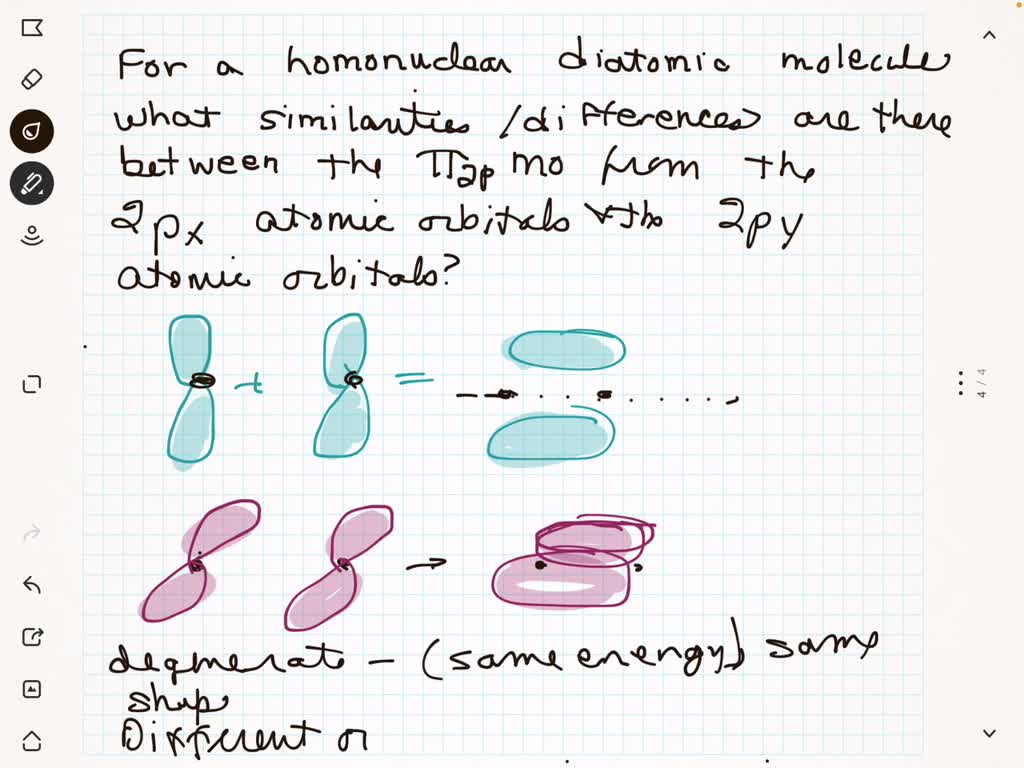 For a homonuclear diatomic molecule
what similarities / differences are there
between the π2p mo from the
2px atomic orbitals 2py
atomic orbitals?
+ =
→
degenerate - (same energy) same
shap
Different or
4 / 4